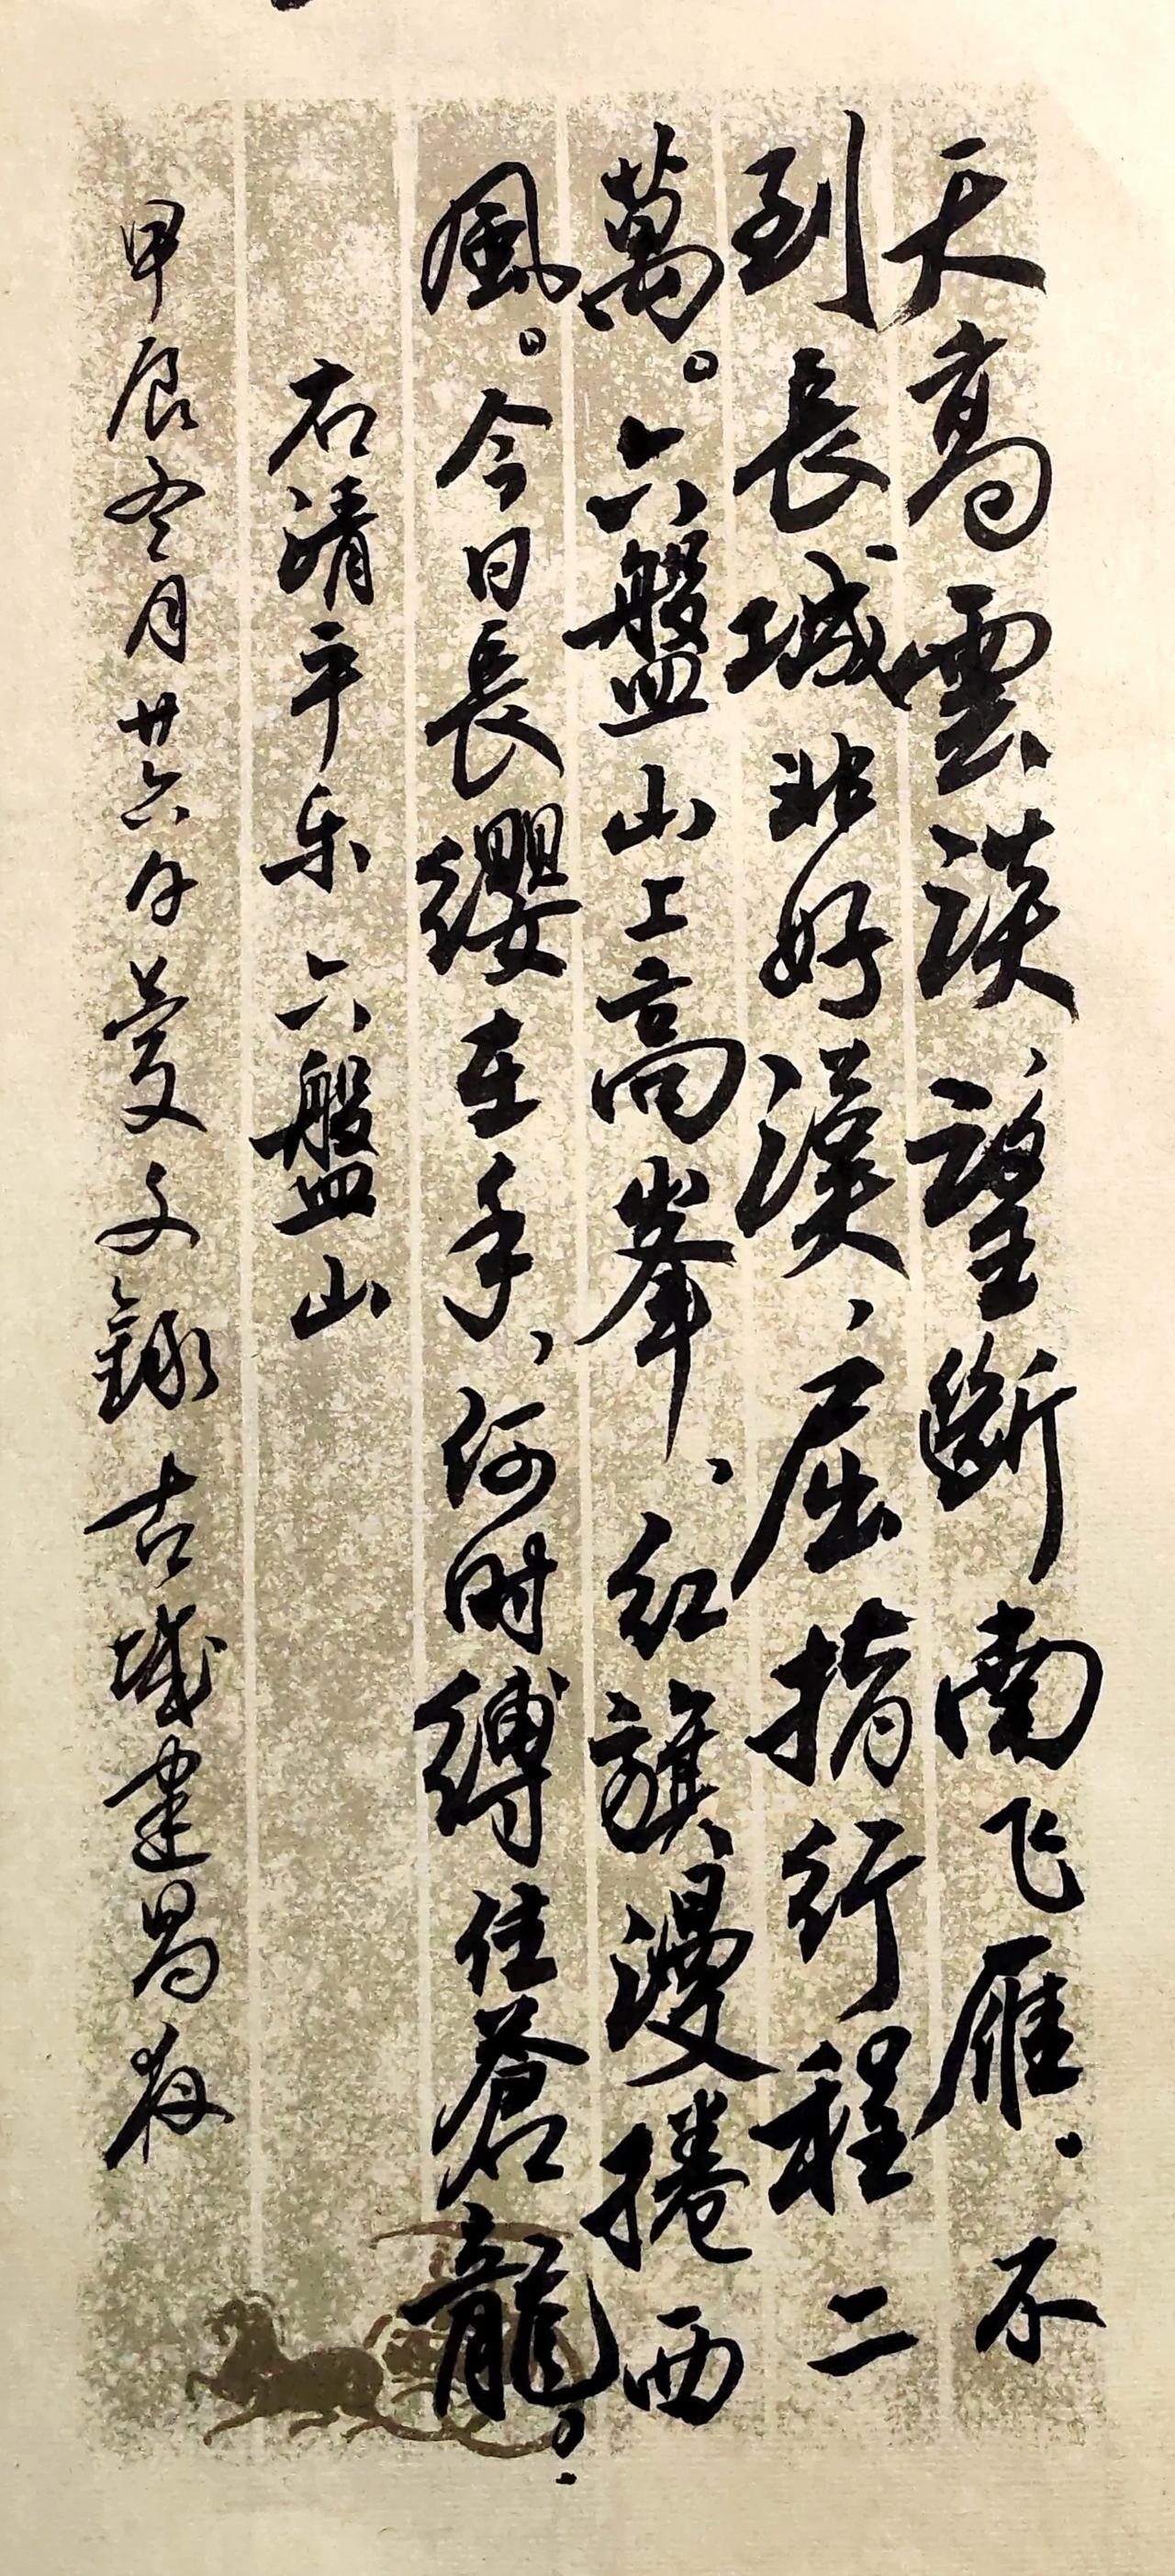 天高雲淡、望斷南飞雁．不
到長城非好漢、屈指行程二
萬。六盤山上高峯、红旗漫捲西
風。今日長纓在手、何时縛住蒼龍。
右清平乐六盤山
甲辰冬月廿六日 文錄古城建昌